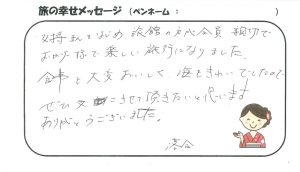 旅の幸せメッセージ （ペンネーム：　　　）
女将さんはじめ 旅館の方々全員 親切で
おかげ様で楽しい旅行になりました。
食事も大変おいしく 海もきれいでしたので
ぜひ又 こさせて頂きたいと思います
ありがとうございました。